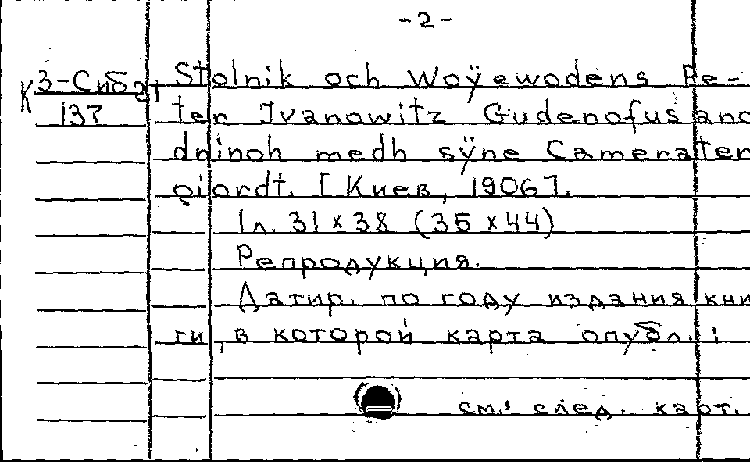 -2-
К 3-Сиб21
137
Stolnik och Woÿewodens Pe-
ter Ivanowitz Gudenofus and
dninoh medh sÿne Camerater
giordt. [Киев, 1906].
1л. 31×38 (35×44)
Репродукция.
Датир. по году издания кни
ги, в которой карта опубл.:
см. след. карт.